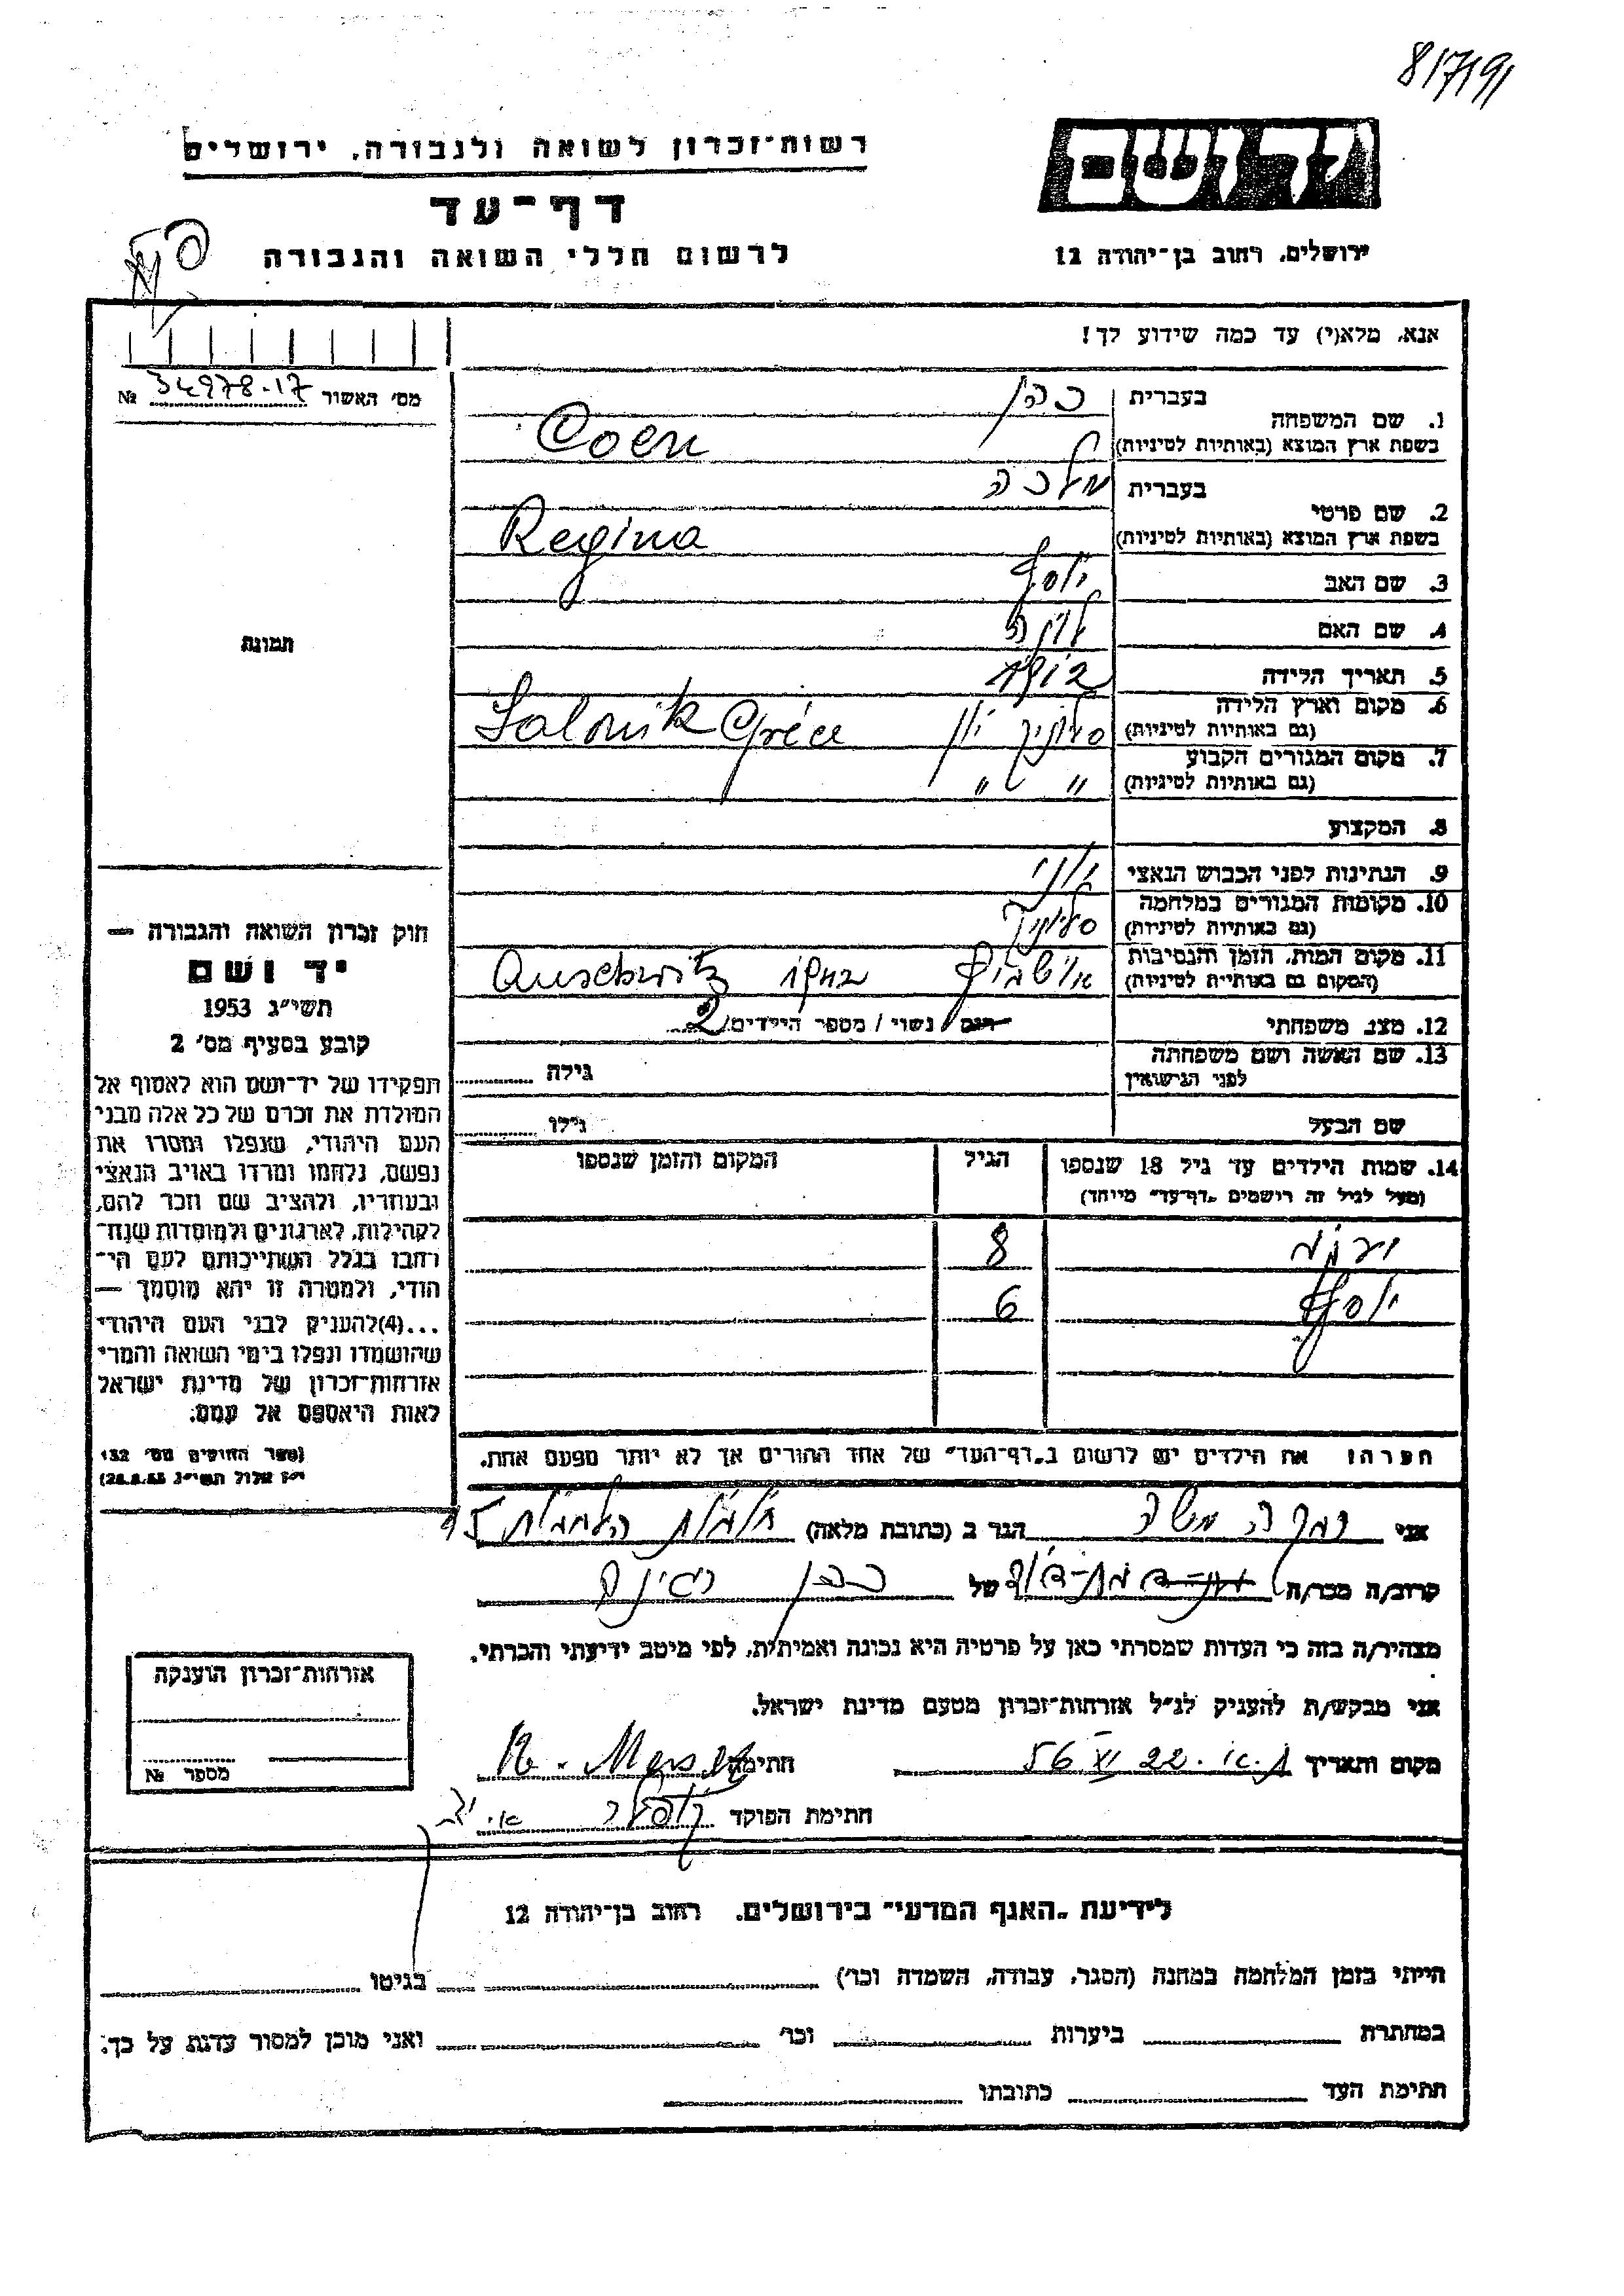 8/7/91
רשות־זכרון לשואה ולגבורה, ירושלים
דף־עד
לרשום חללי השואה והגבורה
יד ושם
ירושלים, רחוב בן־יהודה 12
אנא, מלא(י) עד כמה שידוע לך!
מס׳ האשור 34978-17 №
תמונה
1. שם המשפחה בעברית כהן
בשפת ארץ המוצא (באותיות לטיניות) Coen
2. שם פרטי בעברית מלכה
בשפת ארץ המוצא (באותיות לטיניות) Regina
3. שם האב יוסף
4. שם האם
5. תאריך הלידה
6. מקום וארץ הלידה
(גם באותיות לטיניות) סלוניקי יון Salonik Gréce
7. מקום המגורים הקבוע
(גם באותיות לטיניות) " "
8. המקצוע
9. הנתינות לפני הכבוש הנאצי יוני
10. מקומות המגורים במלחמה
(גם באותיות לטיניות) סלוניקי
11. מקום המות, הזמן והנסיבות
(המקום גם באותיות לטיניות) אושביץ Auschwitz
12. מצב משפחתי רווק / נשוי / מספר הילדים 2
13. שם האשה ושם משפחתה
לפני הנישואין גילה
שם הבעל גילו
14. שמות הילדים עד גיל 18 שנספו הגיל המקום והזמן שנספו
(מעל לגיל זה רושמים „דף־עד״ מייחד)
8
יוסף 6
חוק זכרון השואה והגבורה —
יד ושם
תשי״ג 1953
קובע בסעיף מס׳ 2
תפקידו של יד־ושם הוא לאסוף אל
המולדת את זכרם של כל אלה מבני
העם היהודי, שנפלו ומסרו את
נפשם, נלחמו ומרדו באויב הנאצי
ובעוזריו, ולהציב שם וזכר להם,
לקהילות, לארגונים ולמוסדות שנח־
רבו בגלל השתייכותם לעם הי־
הודי, ולמטרה זו יהא מוסמך —
...(4)להעניק לבני העם היהודי
שהושמדו ונפלו בימי השואה והמרי
אזרחות־זכרון של מדינת ישראל
לאות היאספם אל עמם.
(ספר החוקים מס׳ 132
י״ז אלול תשי״ג 28.8.53)
הערה: את הילדים יש לרשום ב„דף־העד״ של אחד ההורים אך לא יותר מפעם אחת.
אני משה הגר ב (כתובת מלאה)
קרוב/ה מכר/ה של כהן רגינה
מצהיר/ה בזה כי העדות שמסרתי כאן על פרטיה היא נכונה ואמיתית, לפי מיטב ידיעתי והכרתי.
אני מבקש/ת להעניק לנ״ל אזרחות־זכרון מטעם מדינת ישראל.
מקום ותאריך ת.א. 22 XI 56 חתימה
חתימת הפוקד
אזרחות־זכרון הוענקה
מספר №
לידיעת „האגף המדעי״ בירושלים, רחוב בן־יהודה 12
הייתי בזמן המלחמה במחנה (הסגר, עבודה, השמדה וכו׳) בגיטו
במחתרת ביערות וכו׳ ואני מוכן למסור עדות על כך.
חתימת העד כתובתו